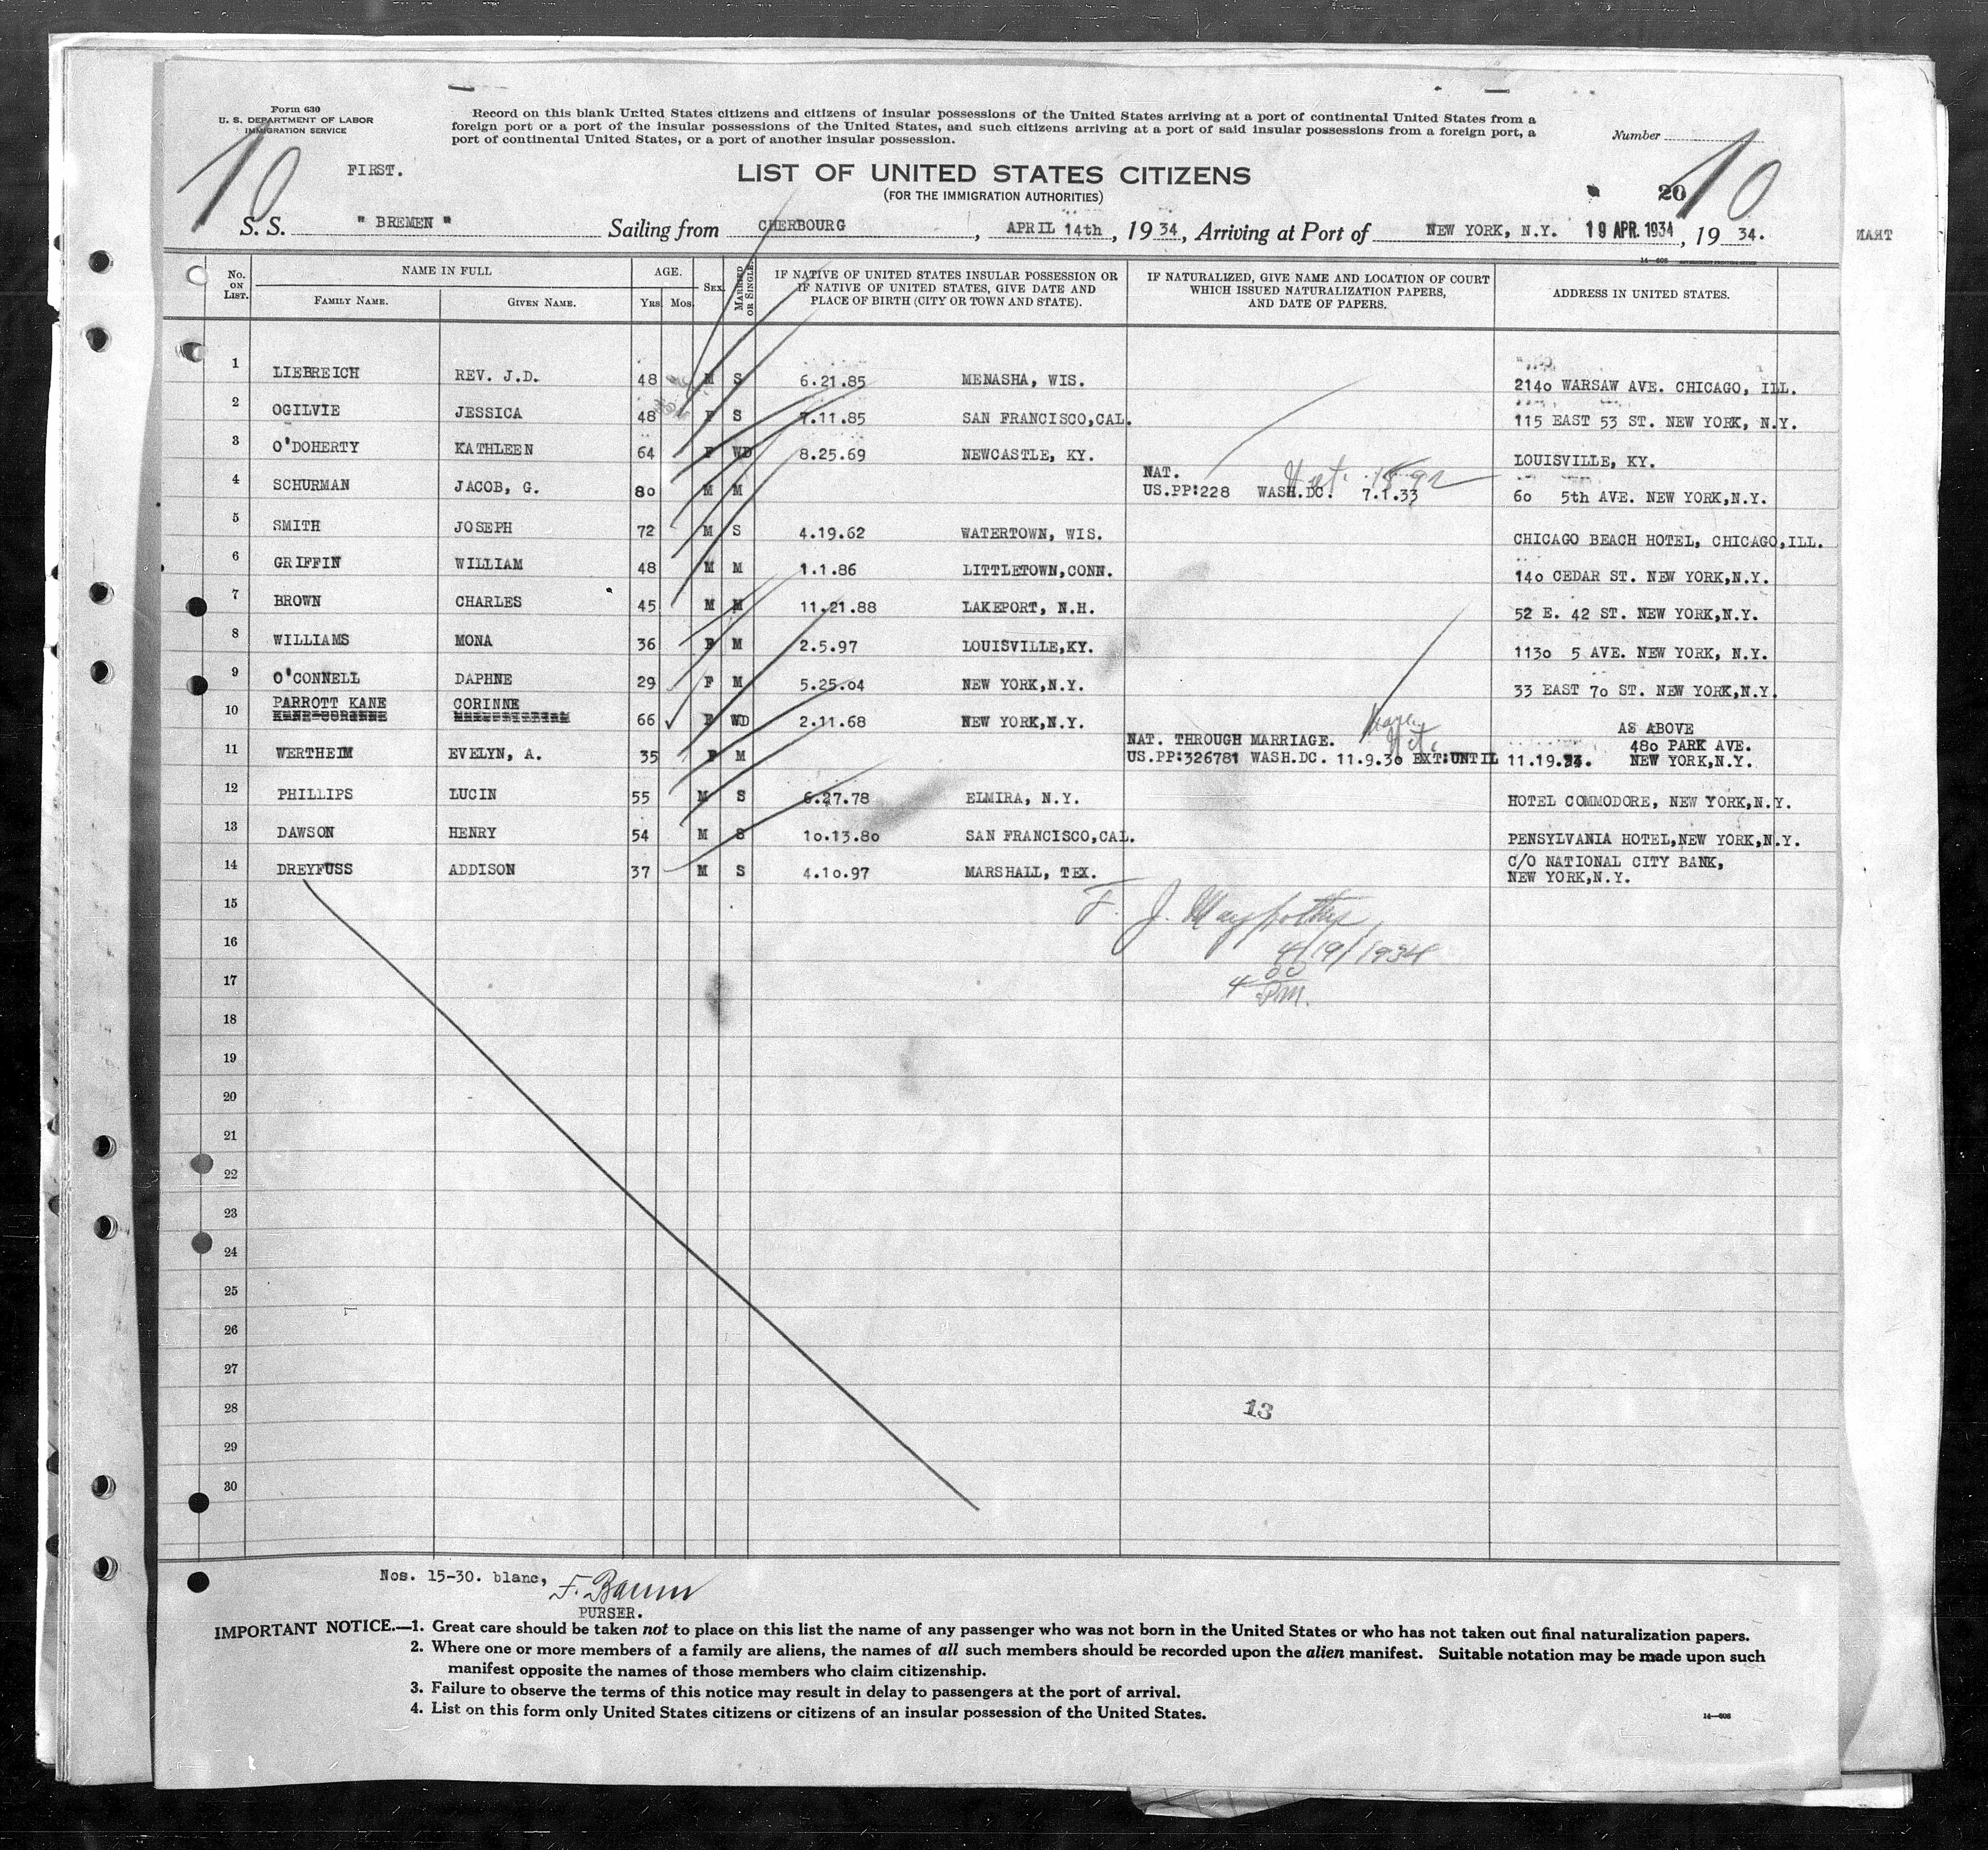 Form 630
U. S. DEPARTMENT OF LABOR
IMMIGRATION SERVICE
Record on this blank United States citizens and citizens of insular possessions of the United States arriving at a port of continental United States from a
foreign port or a port of the insular possessions of the United States, and such citizens arriving at a port of said insular possessions from a foreign port, a
port of continental United States, or a port of another insular possession.
Number
10
FIRST.
LIST OF UNITED STATES CITIZENS
(FOR THE IMMIGRATION AUTHORITIES)
20
10
S. S. " BREMEN " Sailing from CHERBOURG , APRIL 14th , 1934, Arriving at Port of NEW YORK, N.Y. 19 APR. 1934 , 19 34.
No. ON LIST. NAME IN FULL AGE. SEX MARRIED OR SINGLE. IF NATIVE OF UNITED STATES INSULAR POSSESSION OR IF NATIVE OF UNITED STATES, GIVE DATE AND PLACE OF BIRTH (CITY OR TOWN AND STATE). IF NATURALIZED, GIVE NAME AND LOCATION OF COURT WHICH ISSUED NATURALIZATION PAPERS, AND DATE OF PAPERS. ADDRESS IN UNITED STATES.
FAMILY NAME. GIVEN NAME. Yrs Mos.
1 LIEBREICH REV. J.D. 48 M S 6.21.85 MENASHA, WIS. 2140 WARSAW AVE. CHICAGO, ILL.
2 OGILVIE JESSICA 48 F S 7.11.85 SAN FRANCISCO,CAL. 115 EAST 53 ST. NEW YORK, N.Y.
3 O'DOHERTY KATHLEEN 64 F WD 8.25.69 NEWCASTLE, KY. LOUISVILLE, KY.
4 SCHURMAN JACOB, G. 80 M M NAT. 1892
US.PP:228 WASH.DC. 7.1.33 60 5th AVE. NEW YORK,N.Y.
5 SMITH JOSEPH 72 M S 4.19.62 WATERTOWN, WIS. CHICAGO BEACH HOTEL, CHICAGO,ILL.
6 GRIFFIN WILLIAM 48 M M 1.1.86 LITTLETOWN,CONN. 140 CEDAR ST. NEW YORK,N.Y.
7 BROWN CHARLES 45 M M 11.21.88 LAKEPORT, N.H. 52 E. 42 ST. NEW YORK,N.Y.
8 WILLIAMS MONA 36 F M 2.5.97 LOUISVILLE,KY. 1130 5 AVE. NEW YORK, N.Y.
9 O'CONNELL DAPHNE 29 F M 5.25.04 NEW YORK,N.Y. 33 EAST 70 ST. NEW YORK,N.Y.
PARROTT KANE CORINNE
10 66 F WD 2.11.68 NEW YORK,N.Y. AS ABOVE
NAT. THROUGH MARRIAGE. 480 PARK AVE.
11 WERTHEIM EVELYN, A. 35 F M US.PP:326781 WASH.DC. 11.9.30 EXT:UNTIL 11.19. NEW YORK,N.Y.
12 PHILLIPS LUCIN 55 M S 6.27.78 ELMIRA, N.Y. HOTEL COMMODORE, NEW YORK,N.Y.
13 DAWSON HENRY 54 M S 10.13.80 SAN FRANCISCO,CAL. PENSYLVANIA HOTEL,NEW YORK,N.Y.
14 DREYFUSS ADDISON 37 M S 4.10.97 MARSHALL, TEX. C/O NATIONAL CITY BANK,
NEW YORK,N.Y.
15 F. J.
16 4/19/1934
17 4 00 P.M.
18
19
20
21
22
23
24
25
26
27
28 13
29
30
Nos. 15-30. blanc, F. Baum
PURSER.
IMPORTANT NOTICE.—1. Great care should be taken not to place on this list the name of any passenger who was not born in the United States or who has not taken out final naturalization papers.
2. Where one or more members of a family are aliens, the names of all such members should be recorded upon the alien manifest. Suitable notation may be made upon such
manifest opposite the names of those members who claim citizenship.
3. Failure to observe the terms of this notice may result in delay to passengers at the port of arrival.
4. List on this form only United States citizens or citizens of an insular possession of the United States.
14—608